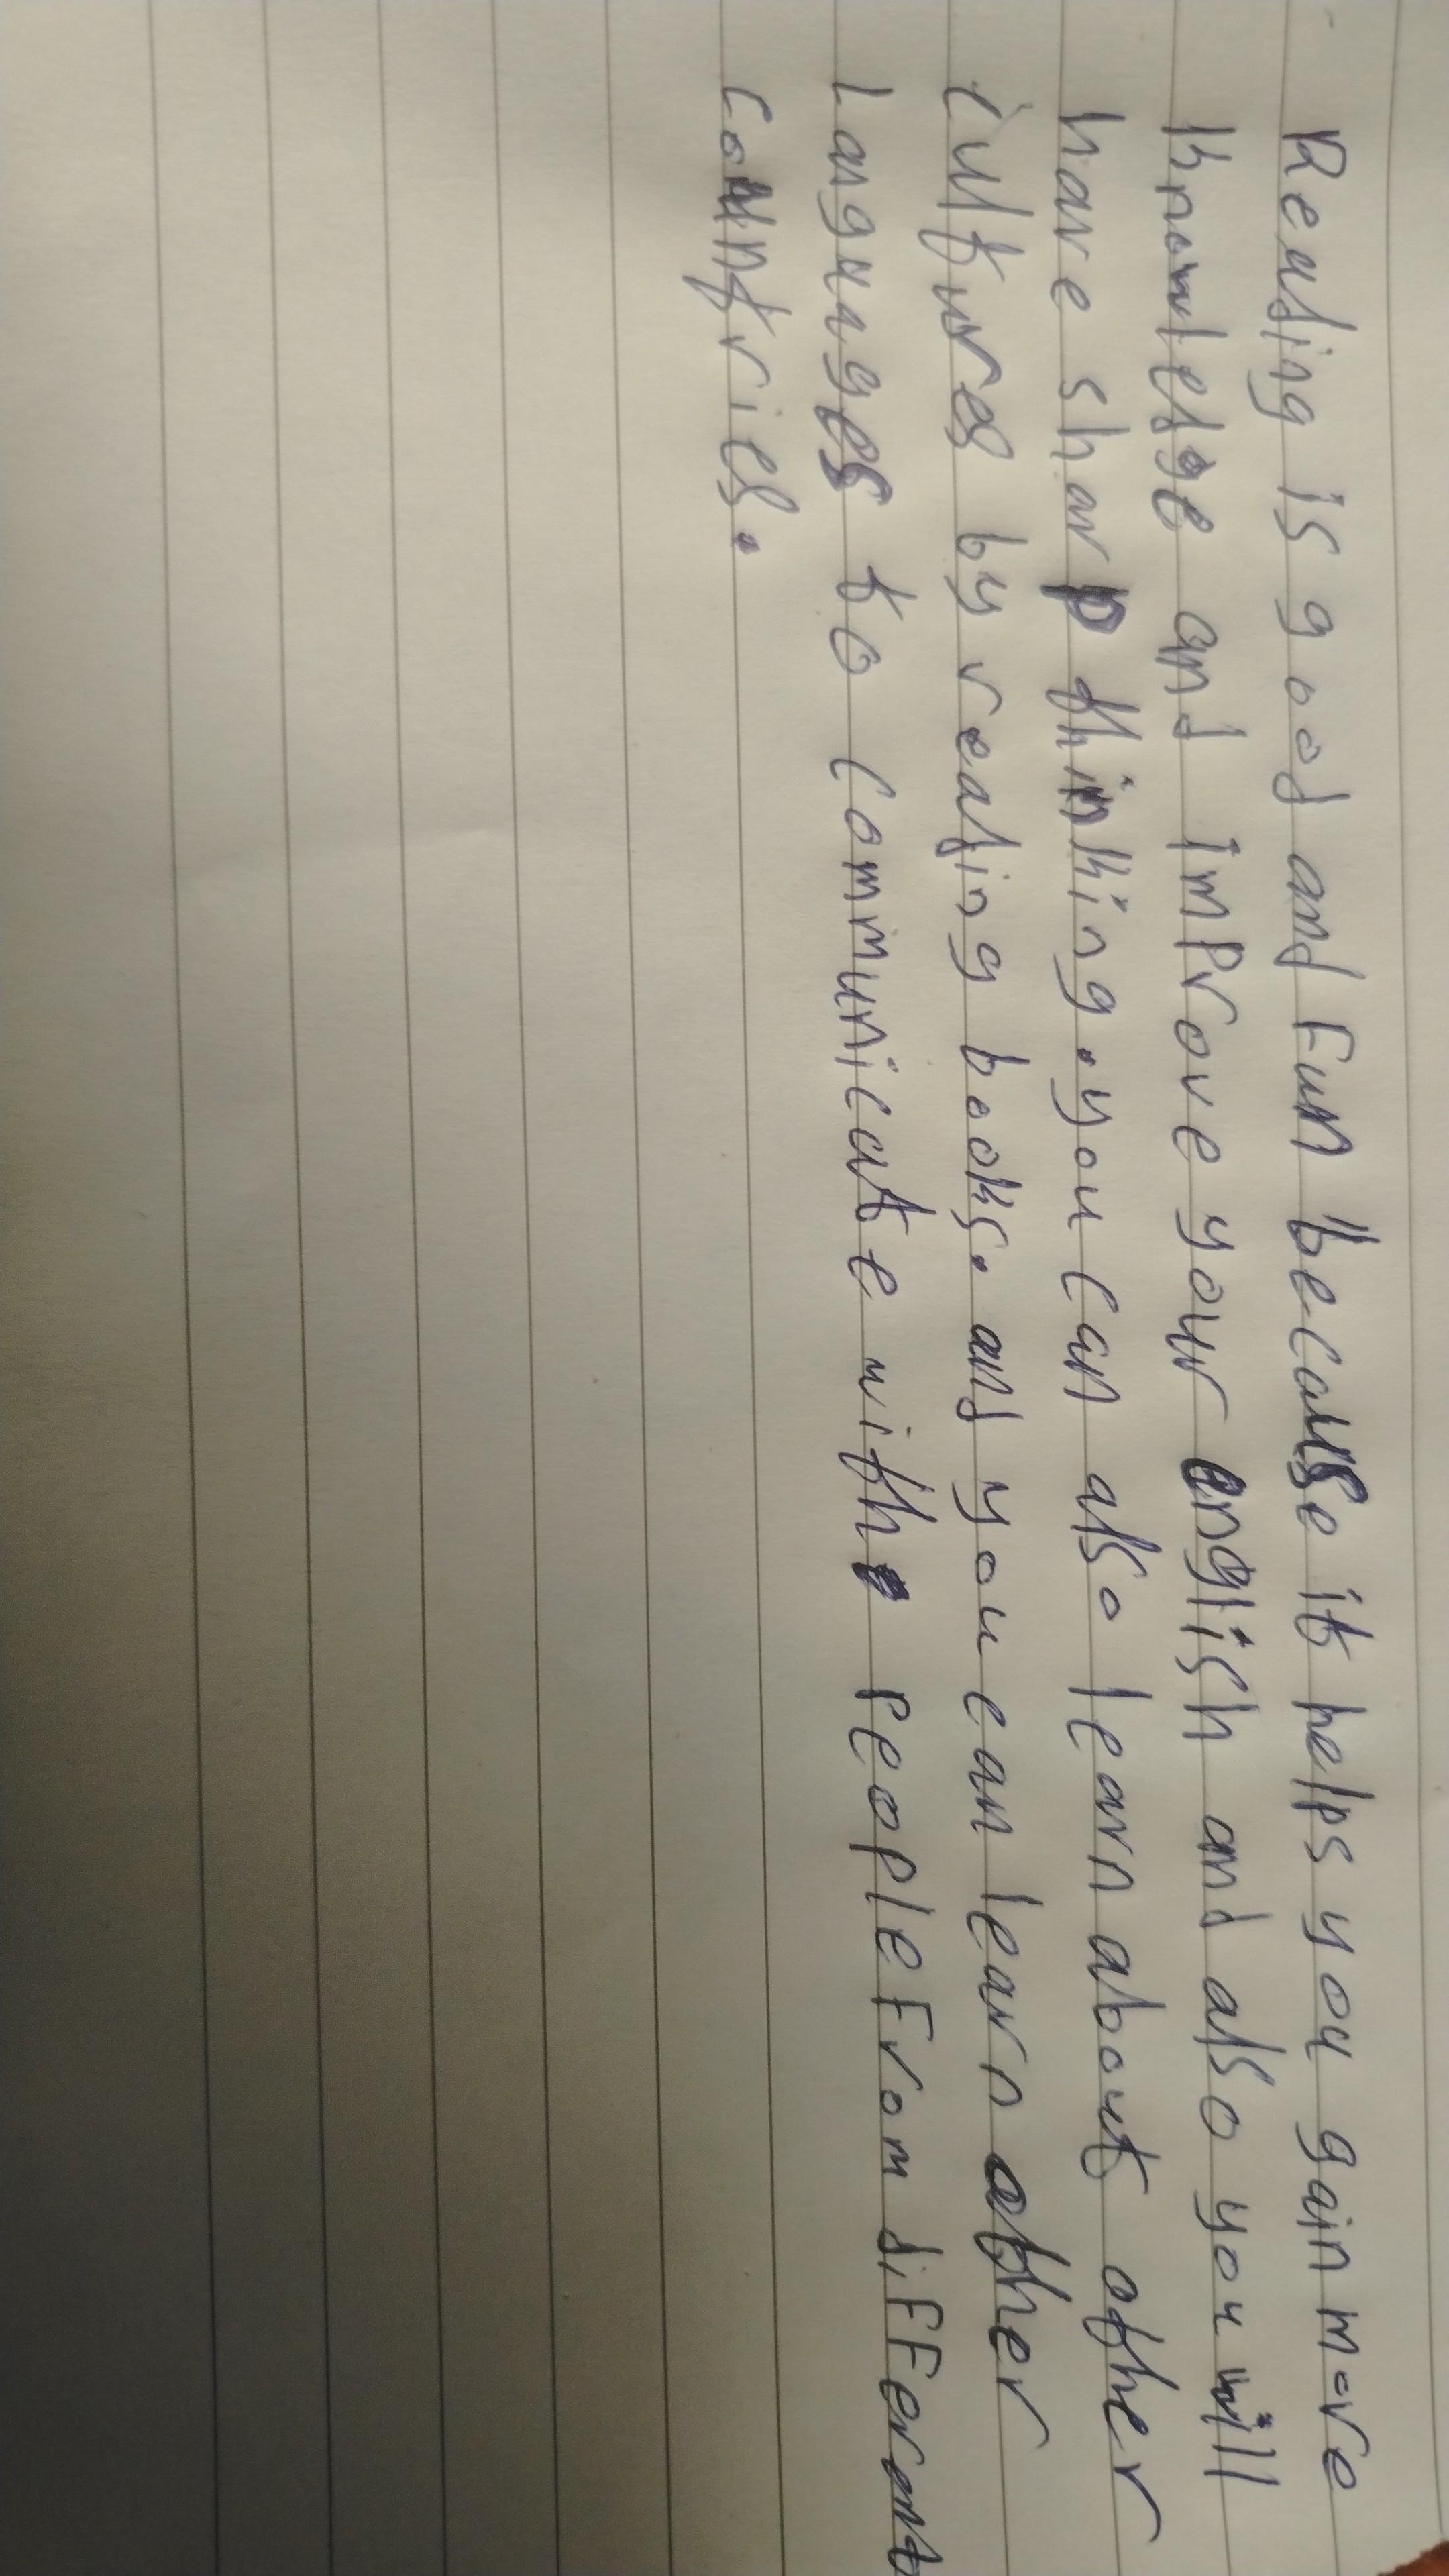 Reading is good and Fun because it helps you gain more
knowledge and imProve your english and also you will
have sharp thinking. you can also learn about other
Cultures by reading books. and you can learn other
Languages to Communicate with People From diFFerent
Countries.